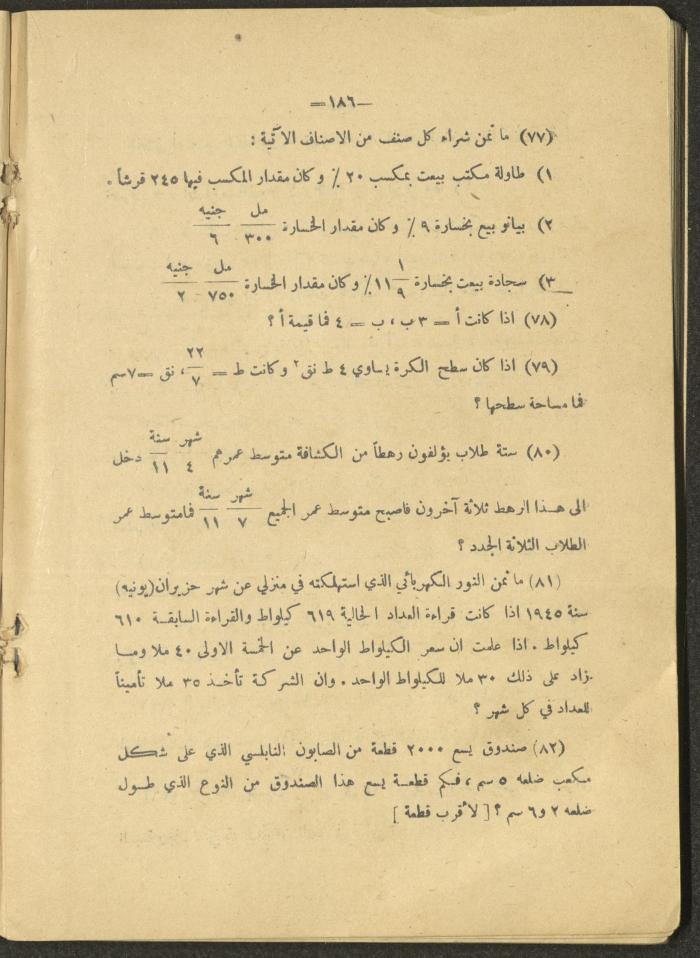 —١٨٦=
(٧٧) ما ثمن شراء كل صنف من الاصناف الآتية :
١) طاولة مكتب بيعت بمكسب ٢٠ ٪ وكان مقدار المكسب فيها ٢٤٥ قرشاً .
٢) بيانو بيع بخسارة ٩ ٪ وكان مقدار الخسارة مل ٣٠٠ جنيه ٦
٣) سجادة بيعت بخسارة ١/٩ ١١ ٪ وكان مقدار الخسارة مل ٧٥٠ جنيه ٢
(٧٨) اذا كانت أ = ٣ ب ، ب = ٤ فما قيمة أ ؟
(٧٩) اذا كان سطح الكرة يساوي ٤ ط نق٢ وكانت ط = ٢٢/٧ ، نق = ٧سم
فما مساحة سطحها ؟
(٨٠) ستة طلاب يؤلفون رهطاً من الكشافة متوسط عمرهم شهر ٤ سنة ١١ دخل
الى هذا الرهط ثلاثة آخرون فاصبح متوسط عمر الجميع شهر ٧ سنة ١١ فمامتوسط عمر
الطلاب الثلاثة الجدد ؟
(٨١) ما ثمن النور الكهربائي الذي استهلكته في منزلي عن شهر حزيران(يونيه)
سنة ١٩٤٥ اذا كانت قراءة العداد الحالية ٦١٩ كيلواط والقراءة السابقة ٦١٠
كيلواط . اذا علمت ان سعر الكيلواط الواحد عن الخمسة الاولى ٤٠ ملا وما
زاد على ذلك ٣٠ ملا للكيلواط الواحد . وان الشركة تأخذ ٣٥ ملا تأميناً
للعداد في كل شهر ؟
(٨٢) صندوق يسع ٢٠٠٠ قطعة من الصابون النابلسي الذي على شكل
مكعب ضلعه ٥ سم ، فكم قطعة يسع هذا الصندوق من النوع الذي طول
ضلعه ٢ و٦ سم ؟ [ لأقرب قطعة ]